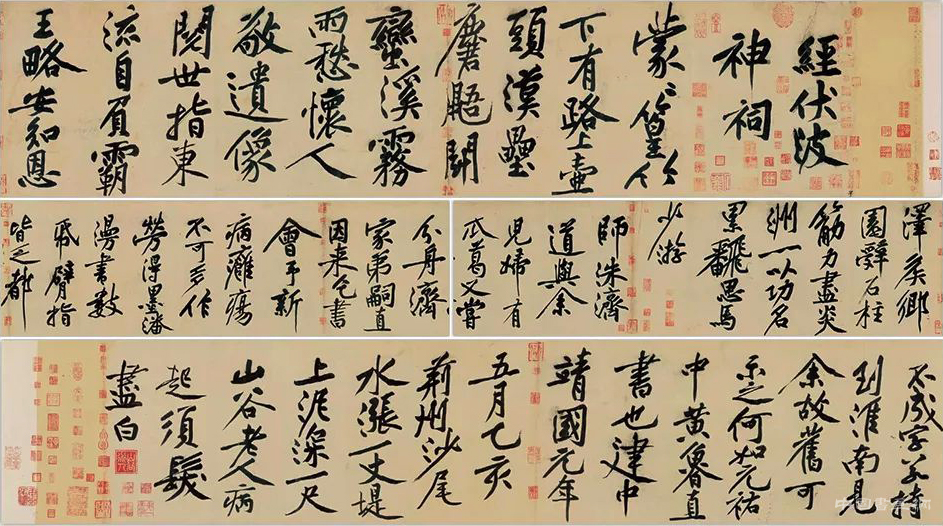 經伏波
神祠
蒙〻篁竹
下有路上壺
頭漢壘
麏鼯鬪
蠻溪霧
雨愁懷人
敬遺像
閱世指東
流自負霸
王略安知恩
澤侯鄉
園辭石柱
筋力盡炎
洲一以功名
累翻思馬
少游
師洙濟
道與余
兒婦有
瓜葛又嘗
分舟濟
家弟嗣直
因來乞書
會予新
病癰瘍
不可多作
勞得墨瀋
漫書數
紙臂指
皆乏都
不成字若持
到淮南見
余故舊可
示之何如元祐
中黃魯直
書也建中
靖國元年
五月乙亥
荊州沙尾
水漲一丈堤
上泥深一尺
山谷老人病
起須髮
盡白